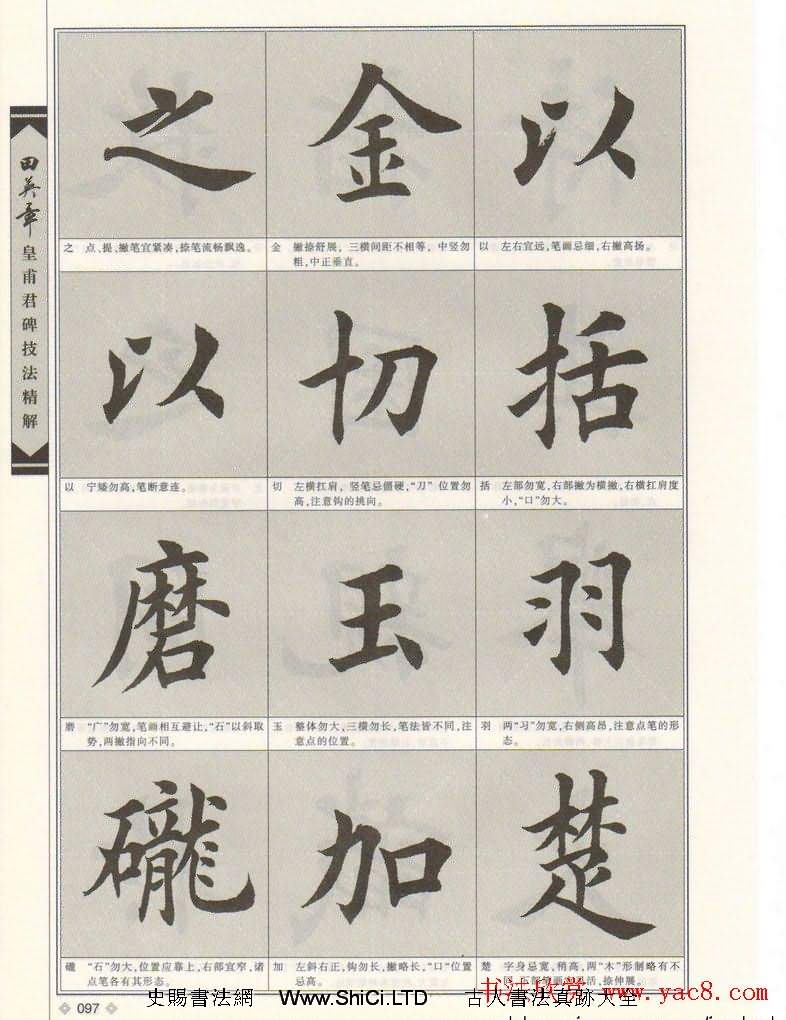 田英章
皇甫君碑技法精解
之
金
以
之 点、提、撇笔宜紧凑,捺笔流畅飘逸。
金 撇捺舒展,三横间距不相等,中竖勿
粗,中正垂直。
以 左右宜远,笔画忌细,右撇高扬。
以
切
括
以 宁矮勿高,笔断意连。
切 左横扛肩,竖笔忌僵硬,“刀”位置勿
高,注意钩的挑向。
括 左部勿宽,右部撇为横撇,右横扛肩度
小,“口”勿大。
磨
玉
羽
磨 “广”勿宽,笔画相互避让,“石”以斜取
势,两撇指向不同。
玉 整体勿大,三横勿长,笔法皆不同,注
意点的位置。
羽 两“习”勿宽,右侧高昂,注意点笔的形
态。
礲
加
楚
礲 “石”勿大,位置应靠上,右部宜窄,诸
点笔各有其形态。
加 左斜右正,钩勿长,撇略长,“口”位置
忌高。
楚 字身忌宽,稍高,两“木”形制略有不
同,下部笔画宜灵活,捺伸展。
097
史賜書法網 Www.ShiCi.LTD 古人書法真跡大全
书法欣赏 www.yac8.com